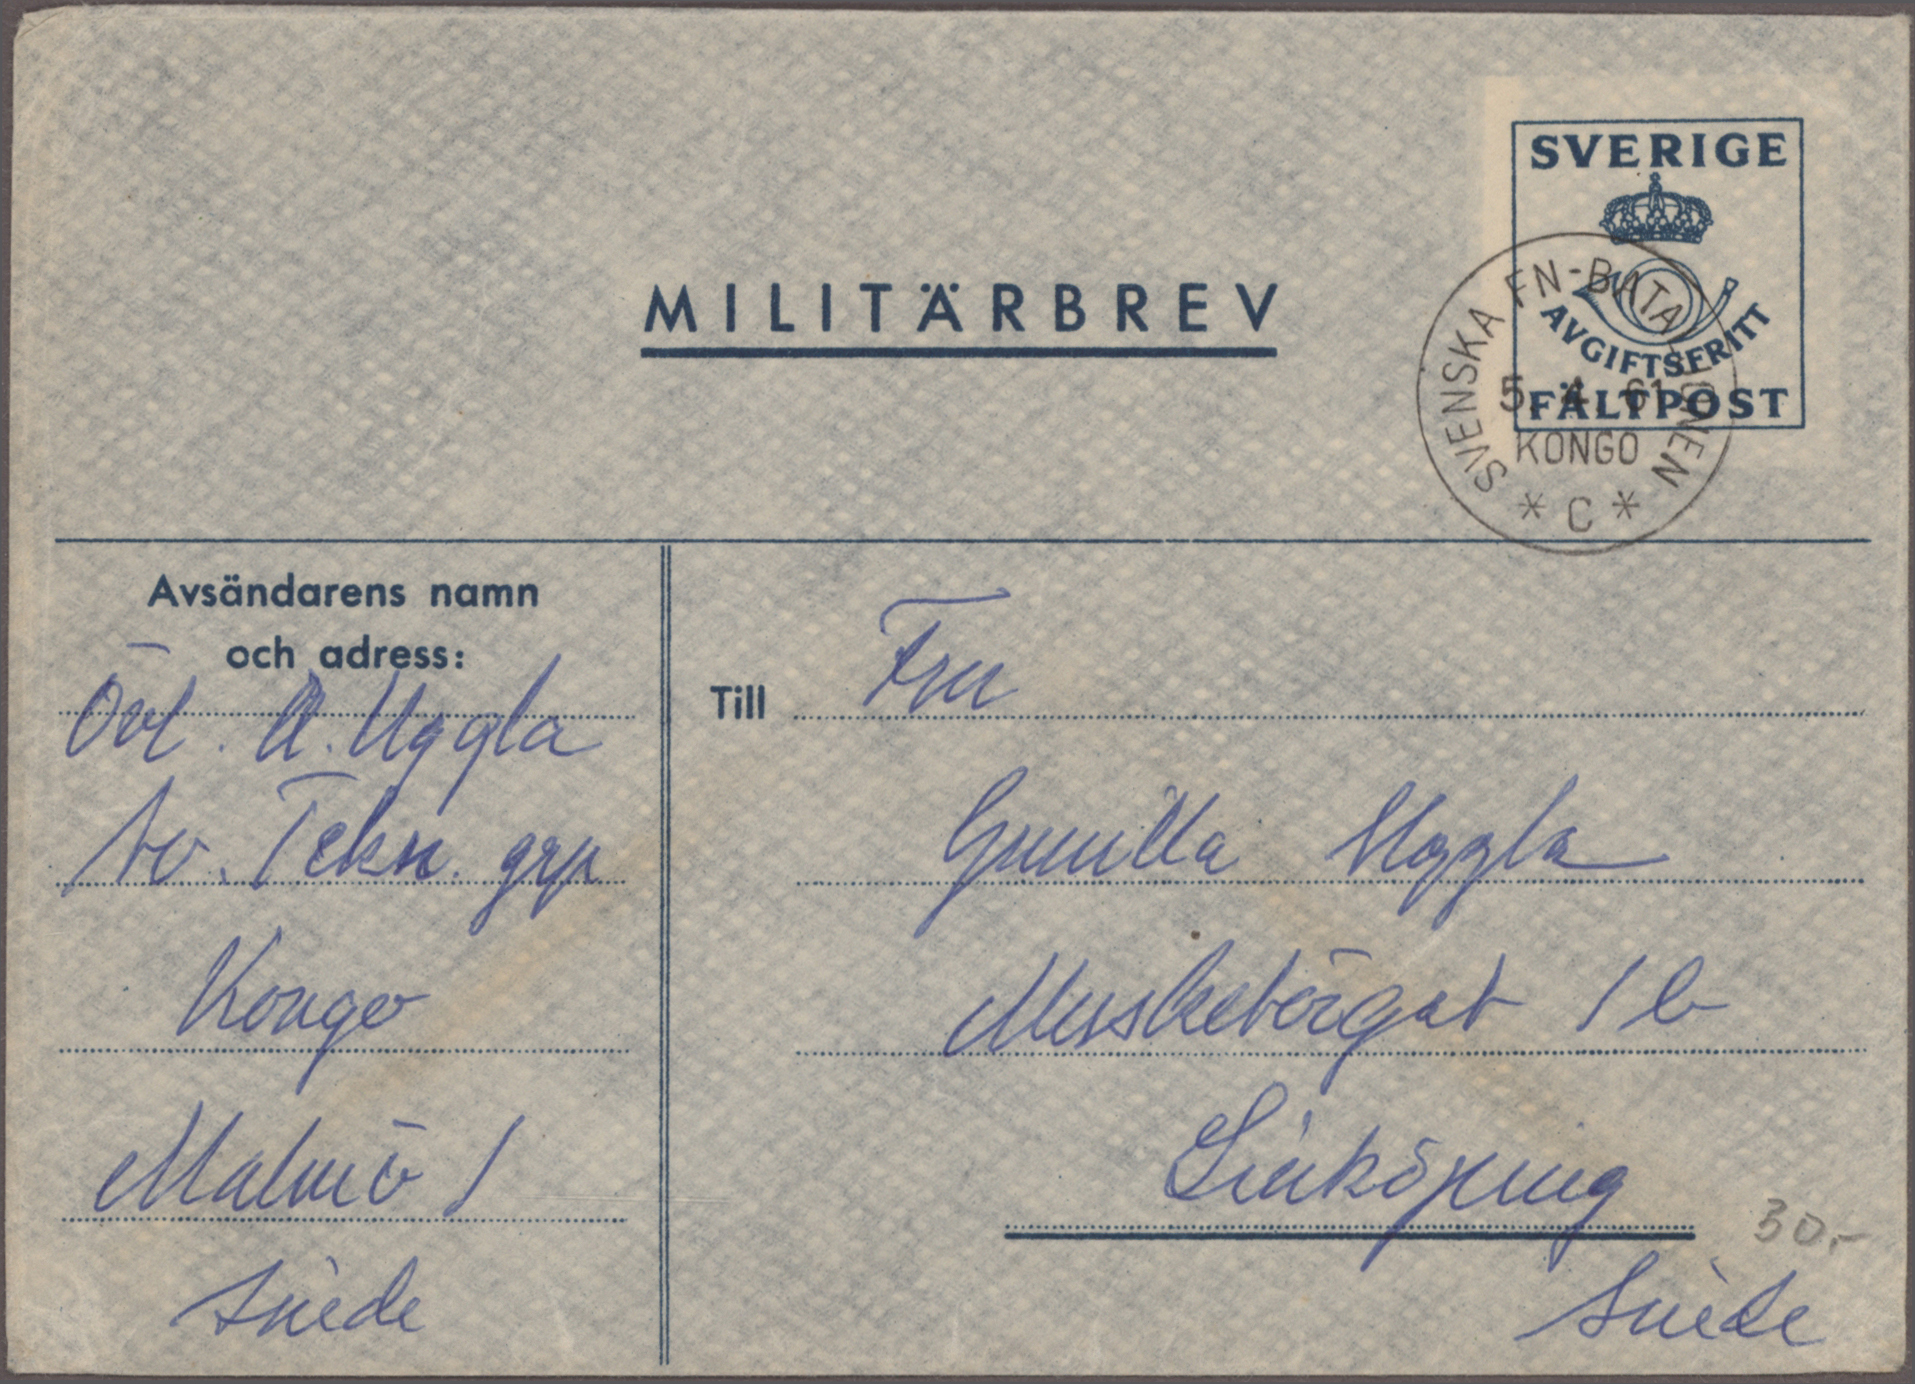 SVERIGE
AVGIFTSFRITT
FÄLTPOST
SVENSKA FN-BATALJONEN
5. 4. 61
KONGO
* C *
MILITÄRBREV
Avsändarens namn
och adress:
Övl. A. Uggla
Tekn. grp
Kongo
Malmö 1
Suède
Till Fru
Gunilla Uggla
Musketörgat 1 b
Linköping
Suède
30.-